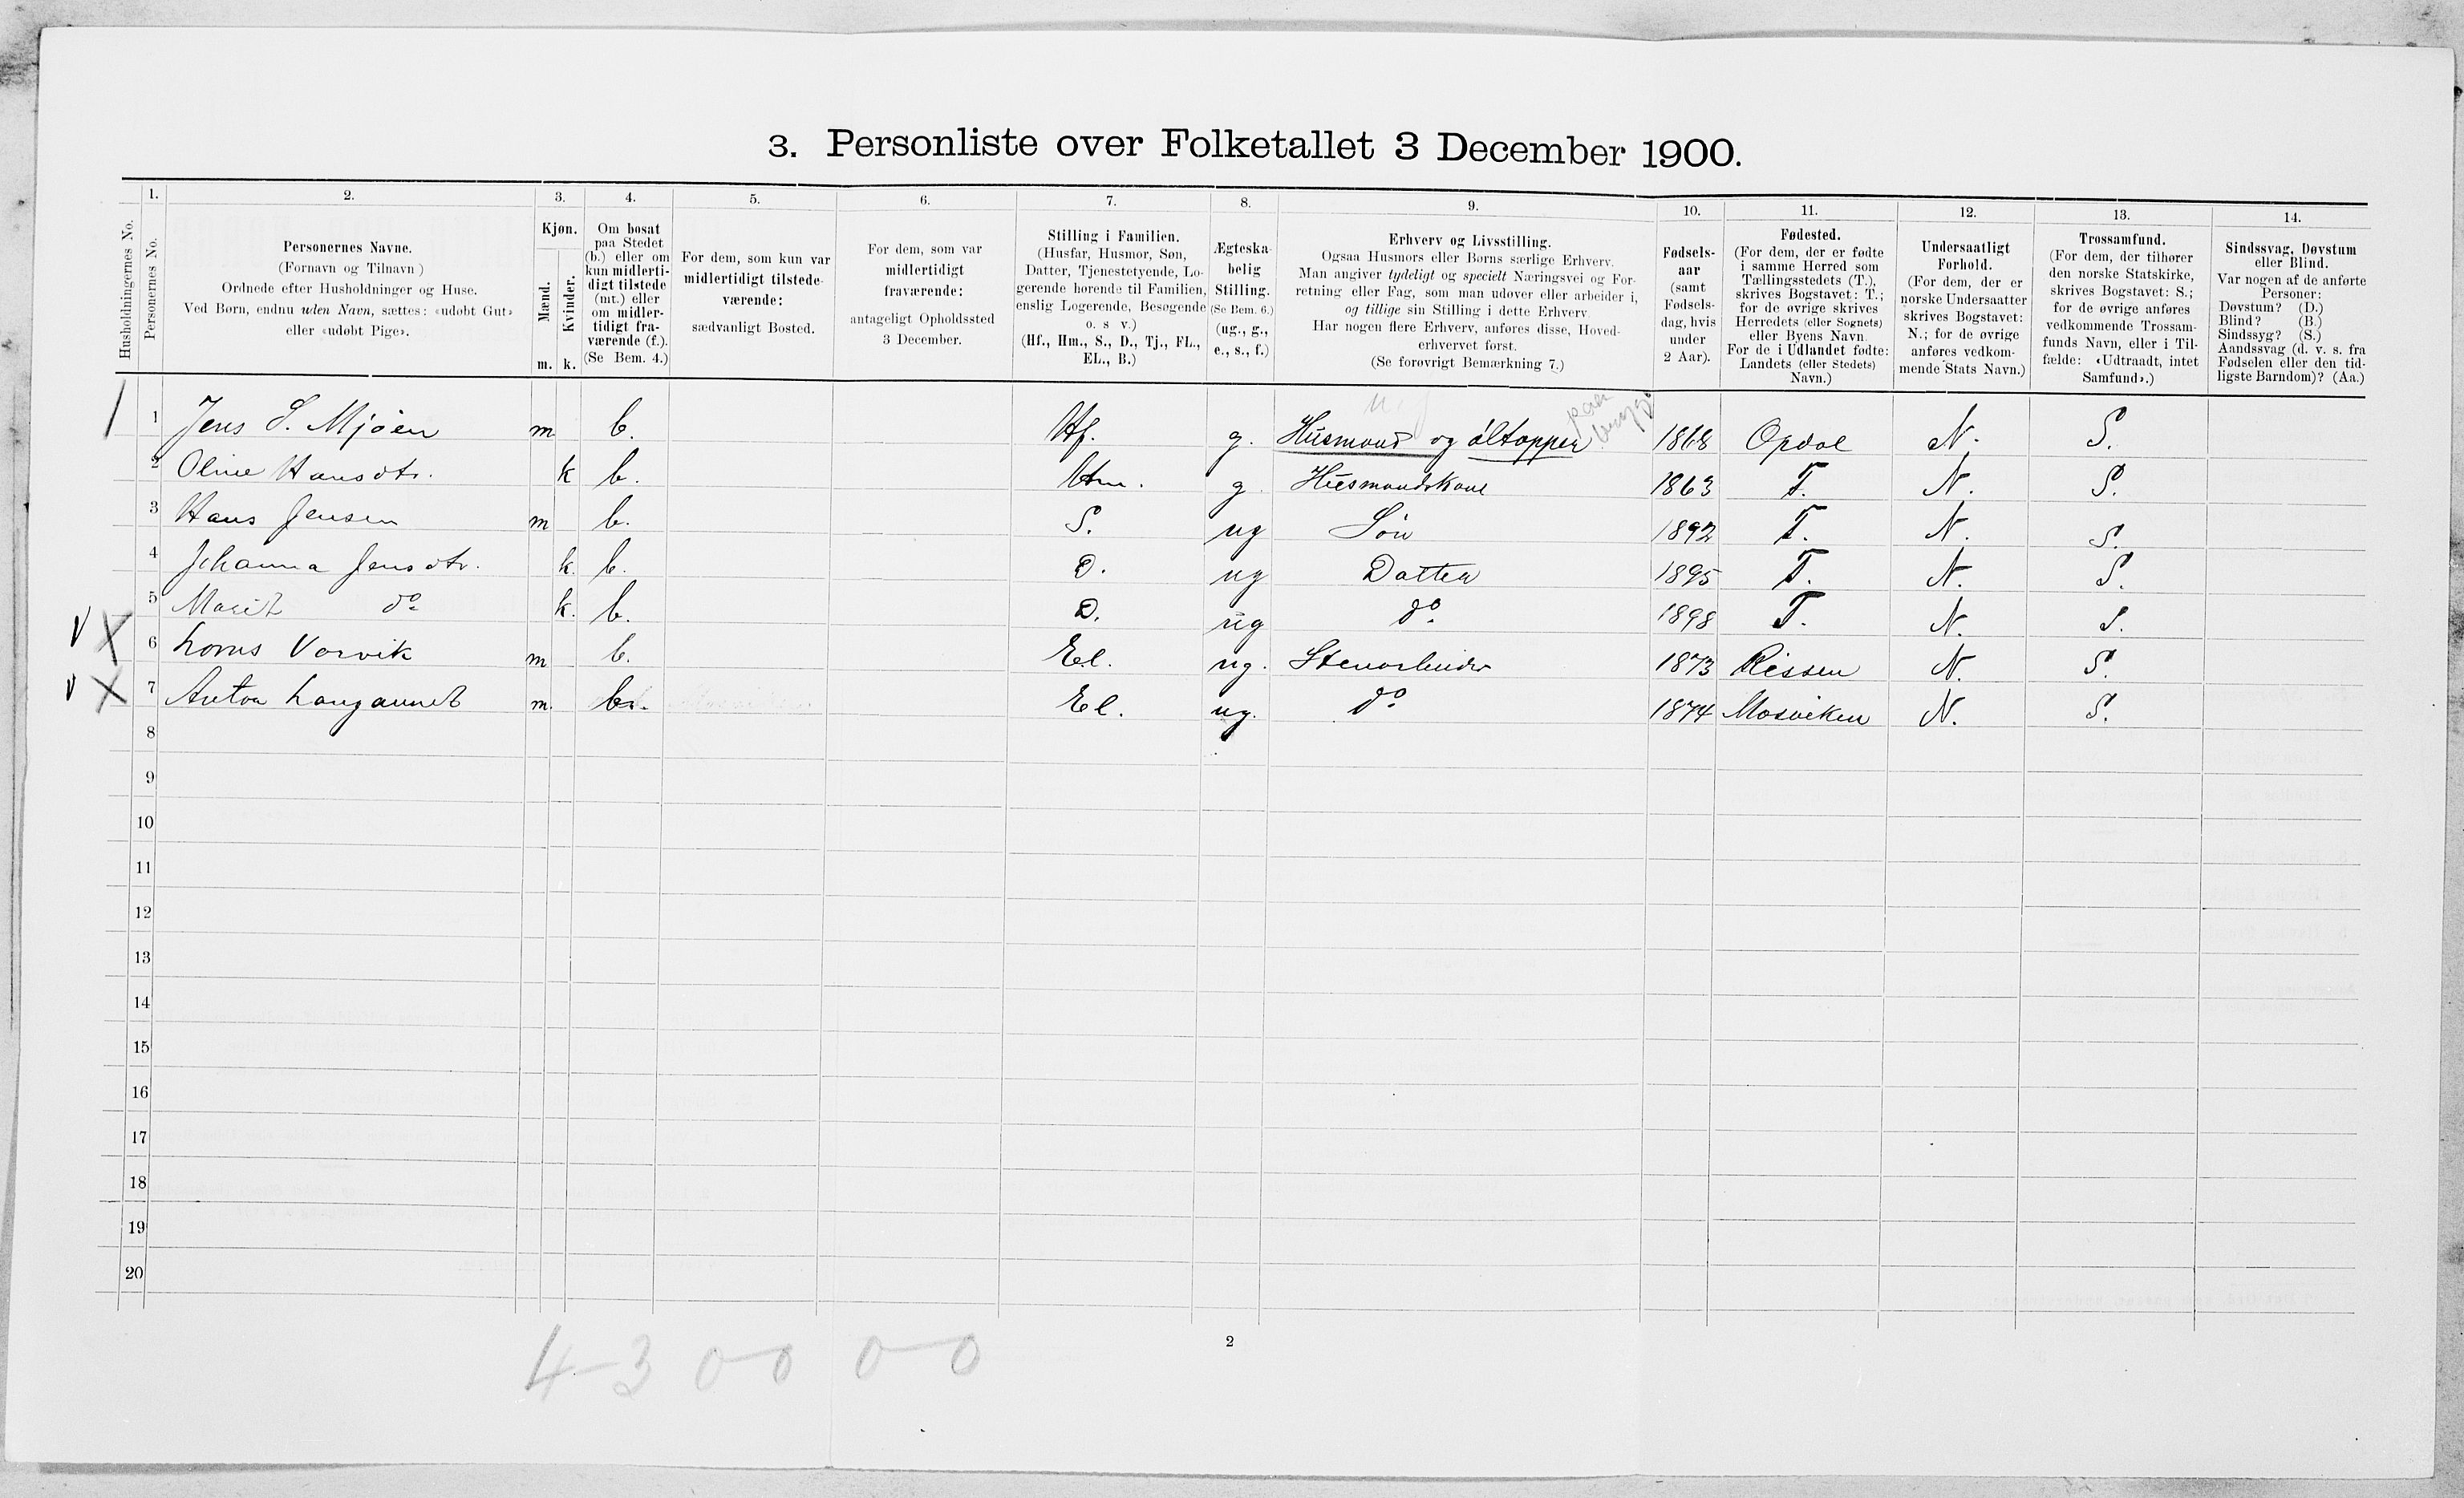 3. Personliste over Folketallet 3 December 1900.
Husholdningernes No.
1. Personernes No.
2. Personernes Navne.
(Fornavn og Tilnavn)
Ordnede efter Husholdninger og Huse.
Ved Børn, endnu uden Navn, sættes: «udøbt Gut»
eller «udøbt Pige».
3. Kjøn.
Mænd. Kvinder.
m. k.
4. Om bosat
paa Stedet
(b.) eller om
kun midlerti-
digt tilstede
(mt.) eller
om midler-
tidigt fra-
værende (f.).
(Se Bem. 4.)
5. For dem, som kun var
midlertidigt tilstede-
værende:
sædvanligt Bosted.
6. For dem, som var
midlertidigt
fraværende:
antageligt Opholdssted
3 December.
7. Stilling i Familien.
(Husfar, Husmor, Søn,
Datter, Tjenestetyende, Lo-
gerende hørende til Familien,
enslig Logerende, Besøgende
o. s v.)
(Hf., Hm., S., D., Tj., FL.,
EL., B.)
8. Ægteska-
belig
Stilling.
(Se Bem. 6.)
(ug., g.,
e., s., f.)
9. Erhverv og Livsstilling.
Ogsaa Husmors eller Børns særlige Erhverv.
Man angiver tydeligt og specielt Næringsvei og For-
retning eller Fag, som man udøver eller arbeider i,
og tillige sin Stilling i dette Erhverv.
Har nogen flere Erhverv, anføres disse, Hoved-
erhvervet først.
(Se forøvrigt Bemærkning 7.)
10. Fødsels-
aar
(samt
Fødsels-
dag, hvis
under
2 Aar).
11. Fødested.
(For dem, der er fødte
i samme Herred som
Tællingsstedets (T.),
skrives Bogstavet: T.;
for de øvrige skrives
Herredets (eller Sognets)
eller Byens Navn.
For de i Udlandet fødte:
Landets (eller Stedets)
Navn.)
12. Undersaatligt
Forhold.
(For dem, der er
norske Undersaatter
skrives Bogstavet:
N.; for de øvrige
anføres vedkom-
mende Stats Navn.)
13. Trossamfund.
(For dem, der tilhører
den norske Statskirke,
skrives Bogstavet: S.;
for de øvrige anføres
vedkommende Trossam-
funds Navn, eller i Til-
fælde: «Udtraadt, intet
Samfund».)
14. Sindssvag, Døvstum
eller Blind.
Var nogen af de anførte
Personer:
Døvstum? (D.)
Blind? (B.)
Sindssyg? (S.)
Aandssvag (d. v. s. fra
Fødselen eller den tid-
ligste Barndom)? (Aa.)
1 Jens S. Mjøen m b. Hf. g. Husmand og øltapper 1868 Opdal N. S.
2 Oline Hansdtr. k b. Hm. g. Husmandskone 1863 T. N. S.
3 Hans Jensen m b. S. ug Søn 1892 T. N. S.
4 Johanna Jensdtr. k. b. D. ug Datter 1895 T. N. S.
5 Marit do k. b. D. ug do 1898 T. N. S.
6 Vorvik m b. El. ug. 1873 Rissen N. S.
7 Anton Langaunet m. b. El. ug. do 1874 Mosviken N. S.
8
9
10
11
12
13
14
15
16
17
18
19
20
2
4-3 0-0 0-0